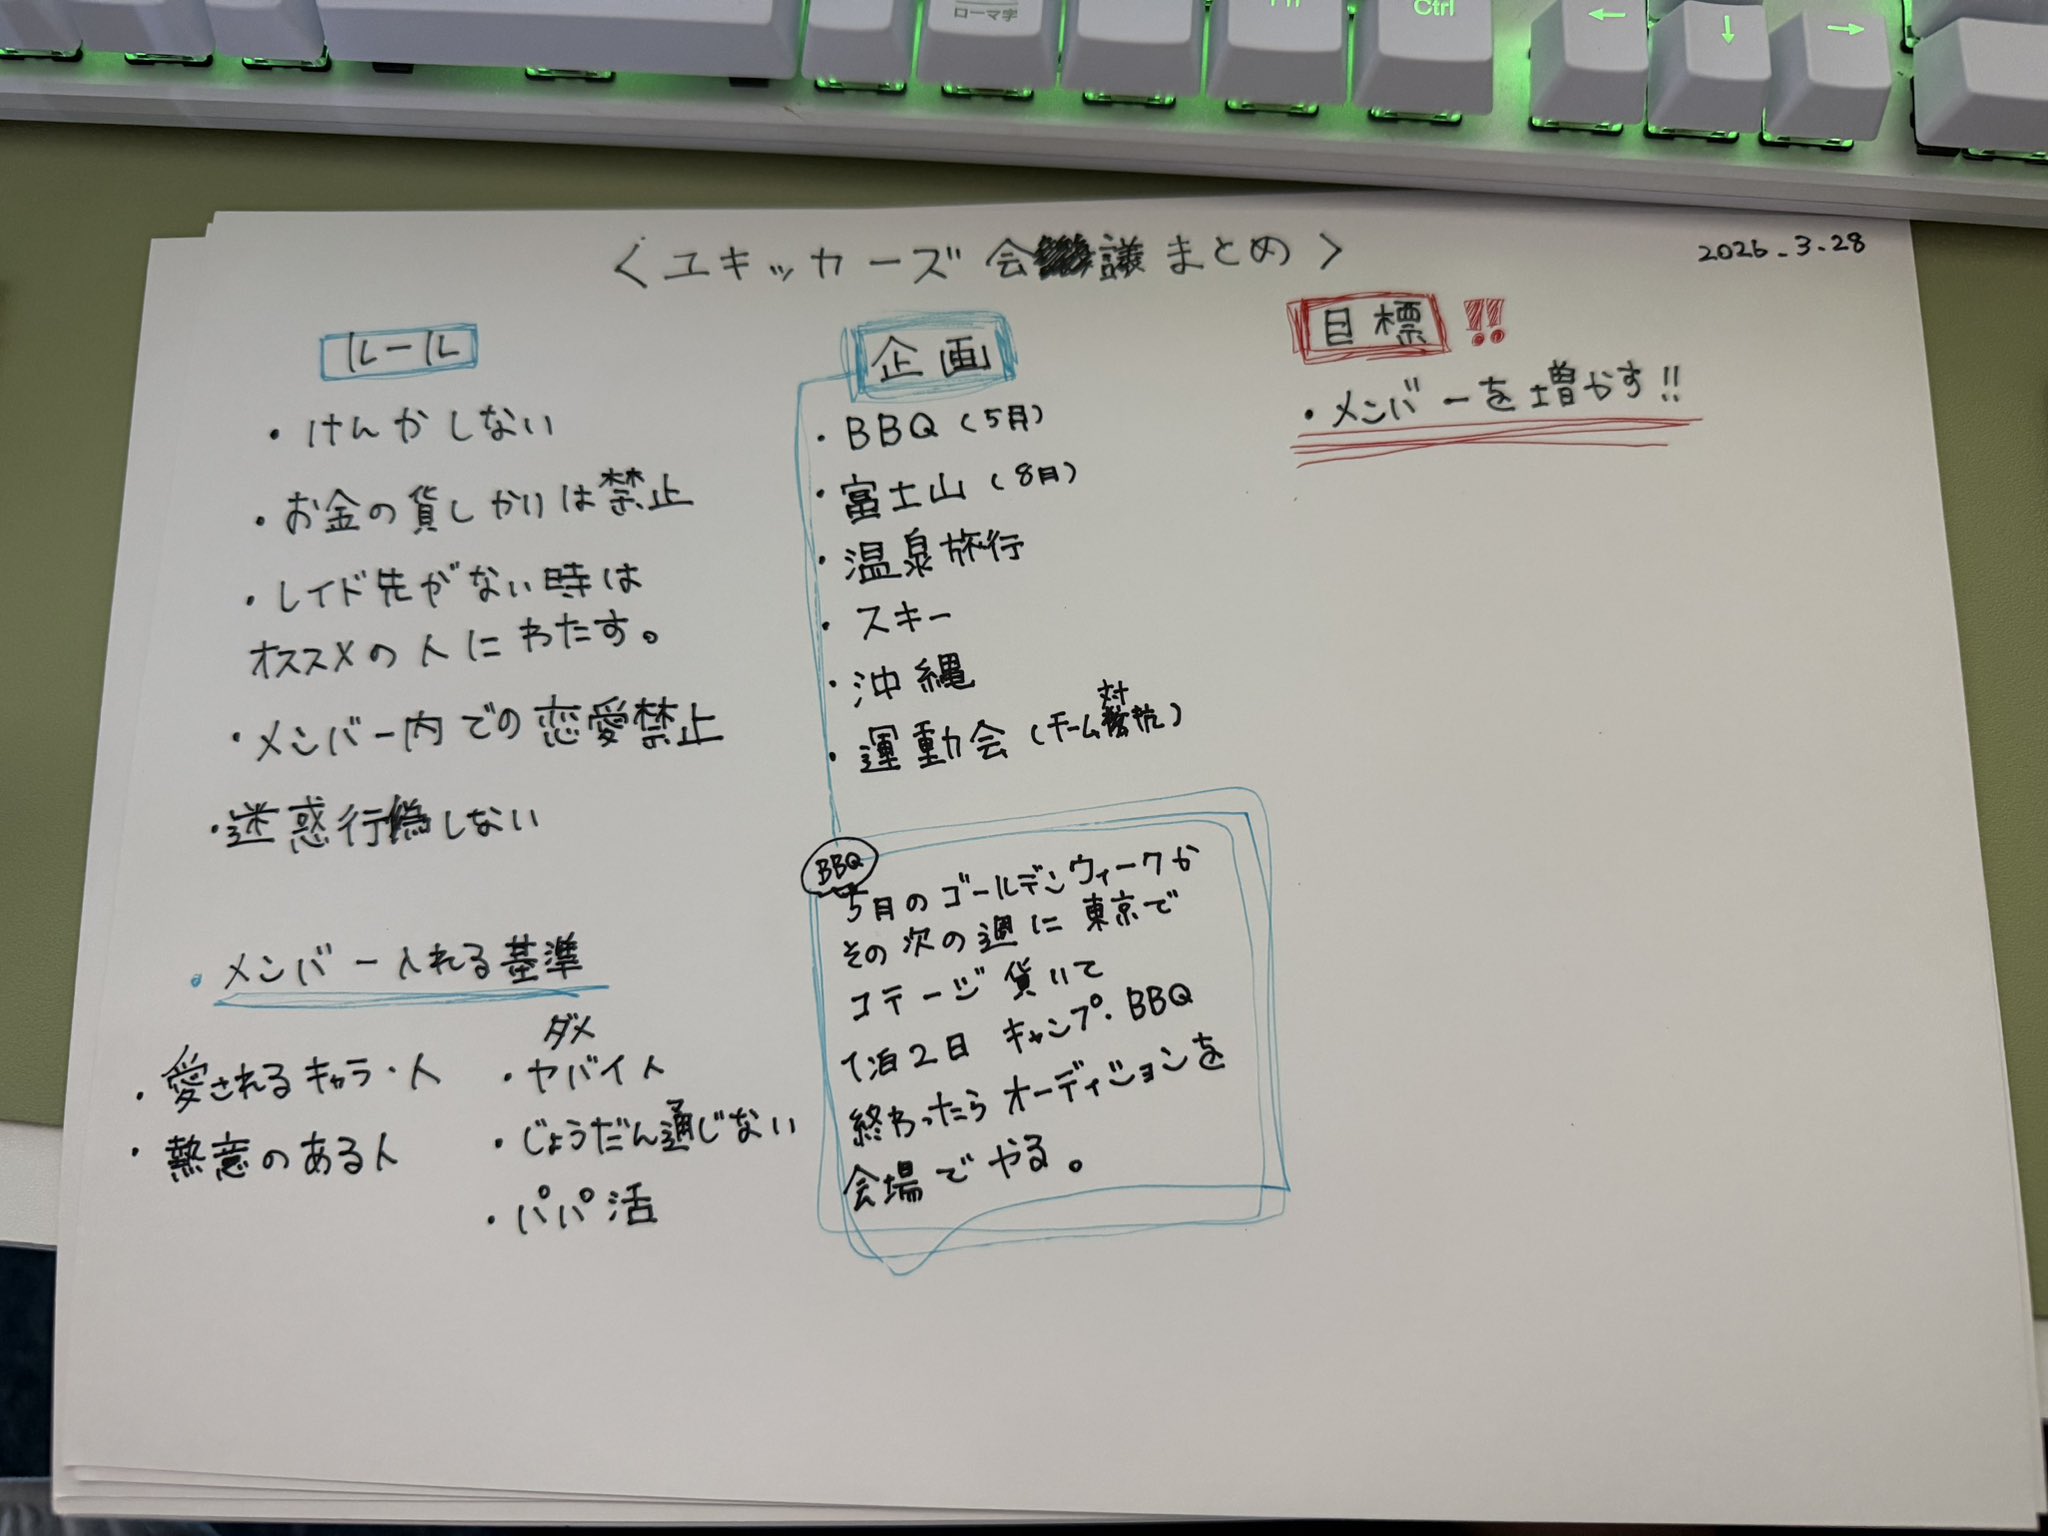 ローマ字
Fn
Ctrl
←
↓
→
<ユキッカーズ 会議まとめ>
2026.3.28
ルール
・けんかしない
・お金の貸しかりは禁止
・レイド先がない時は
オススメの人にわたす。
・メンバー内での恋愛禁止
・迷惑行為しない
・メンバー入れる基準
・愛されるキャラ・人
・熱意のある人
ダメ
・ヤバイ人
・じょうだん通じない
・パパ活
企画
・BBQ(5月)
・富士山(8月)
・温泉旅行
・スキー
・沖縄
・運動会(チーム対抗)
BBQ
5月のゴールデンウィークか
その次の週に東京で
コテージ貸いて
1泊2日 キャンプ・BBQ
終わったらオーディションを
会場でやる。
目標!!
・メンバーを増やす!!